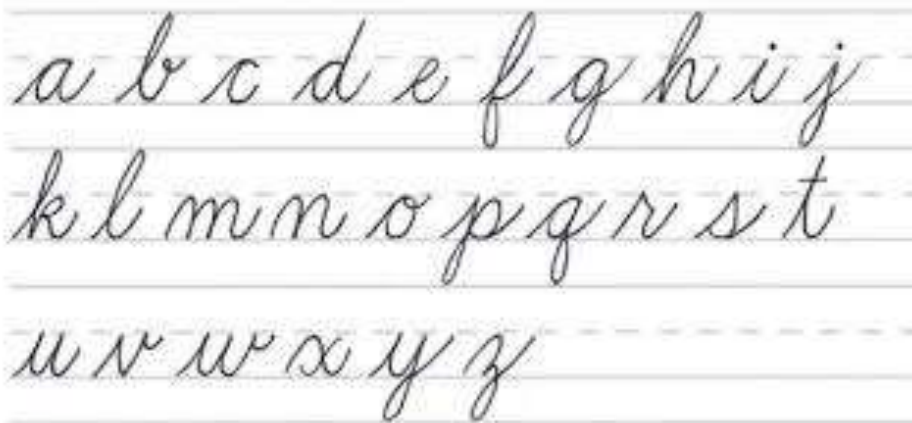 a b c d e f g h i j
k l m n o p q r s t
u v w x y z